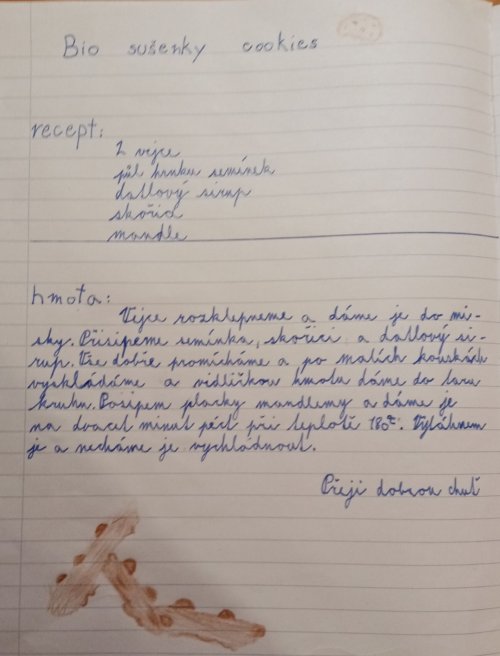 Bio sušenky cookies
recept:
2 vejce
půl hrnku semínek
datlový sirup
skořici
mandle
hmota:
Vejce rozklepneme a dáme je do mi-
sky. Přisipeme semínka, skořici a datlový si-
rup. Vše dobře promícháme a po malích kouskách
vyskládáme a vidličkou hmotu dáme do tvaru
kruhu. Posipem placky mandlemy a dáme je
na dvacet minut péct při teplotě 180°C. Vytáhnem
je a necháme je vychládnout.
Přeji dobrou chuť